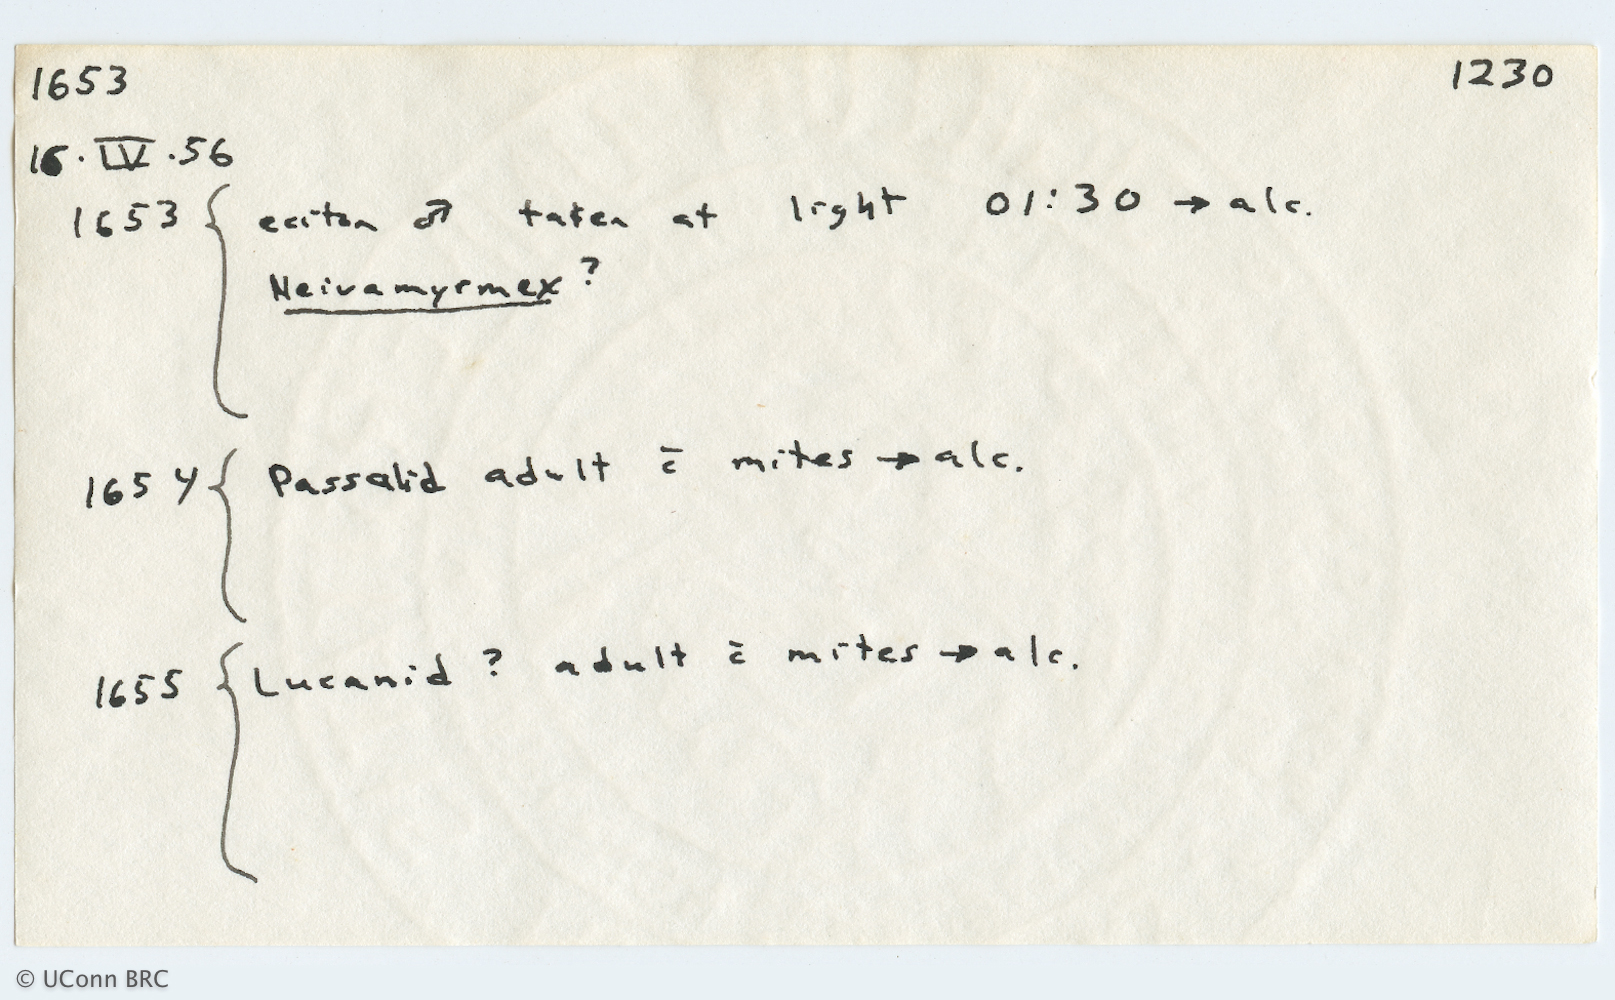 1653 1230
16.IV.56
1653 { eciton ♂ taken at light 01:30 → alc.
Neivamyrmex ?
1654 { Passalid adult c̄ mites → alc.
1655 { Lucanid ? adult c̄ mites → alc.
© UConn BRC